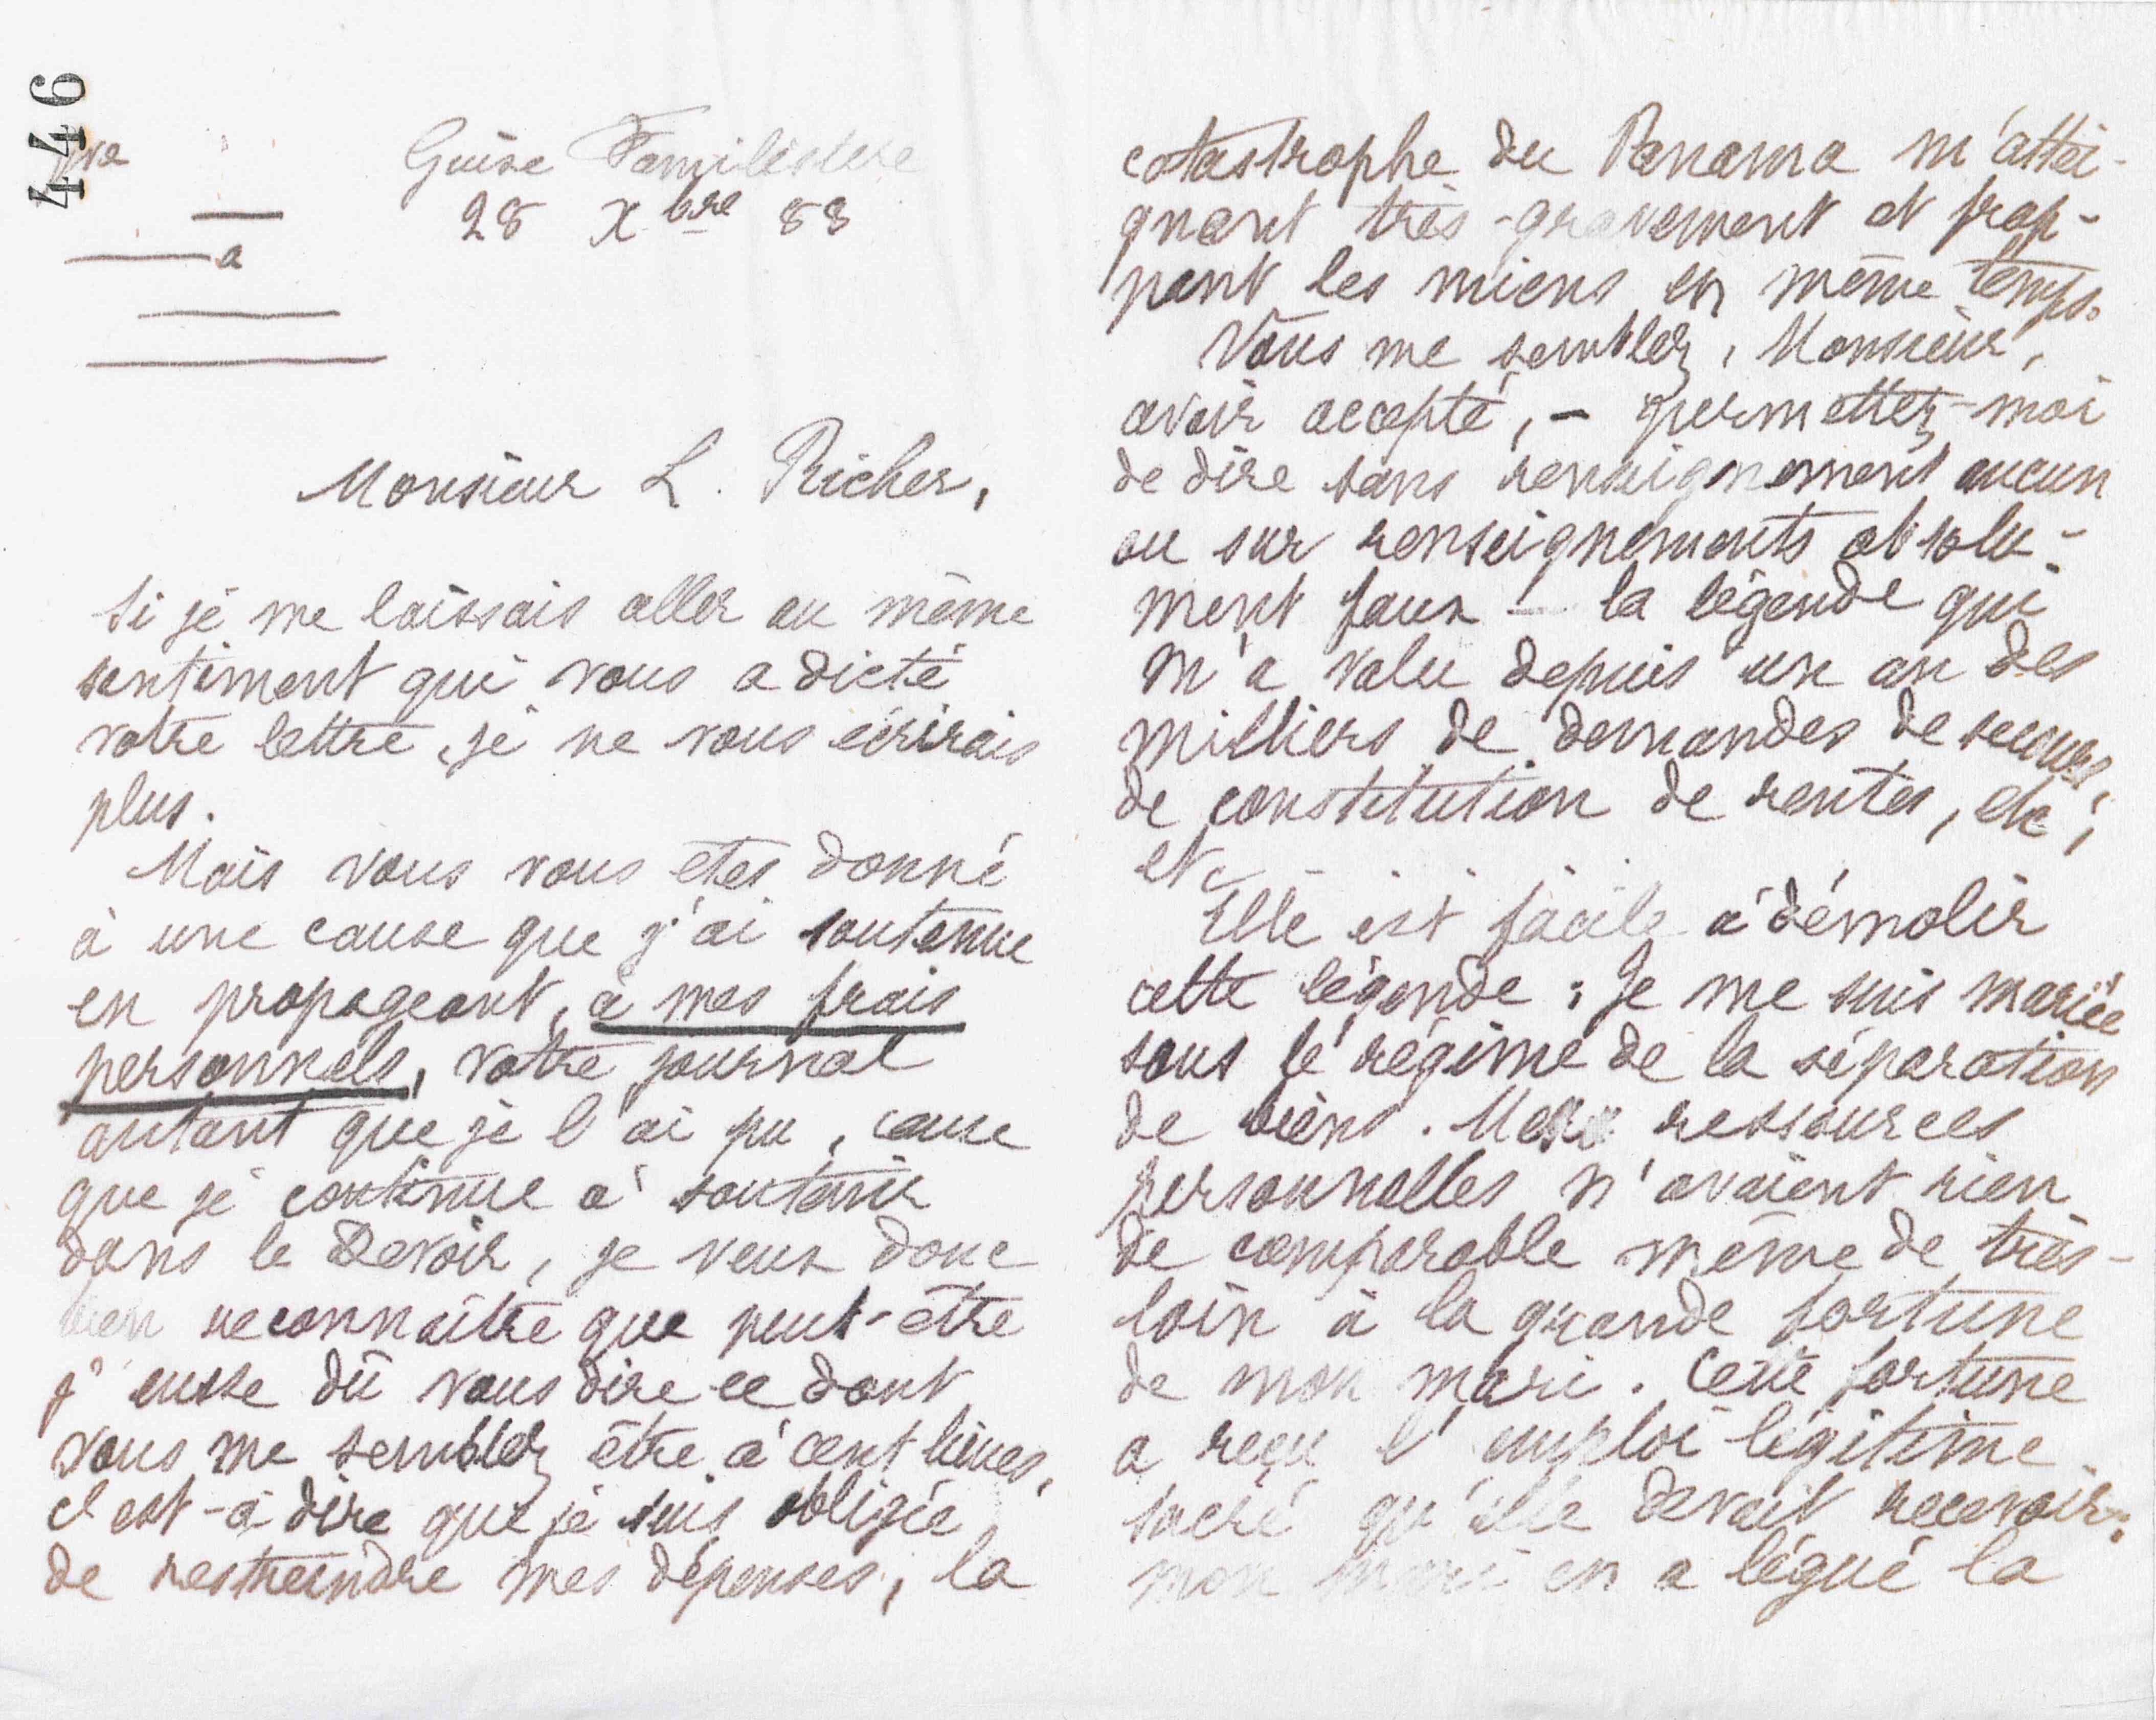 446
Guise Familistere
28 Xbre 88
a
Monsieur L. Richer,
Si je me laissais aller au même
sentiment qui vous a dicté
votre lettre, je ne vous écrirais
plus.
Mais vous vous etes donné
à une cause que j'ai soutenue
en propageant, à mes frais
personnels, votre journal
autant que je l'ai pu, cause
que je continue à soutenir
dans le Devoir, je veux donc
bien reconnaître que peut-être
j'eusse dû vous dire ce dont
vous me semblez être à cent lieues,
c'est-à dire que je suis obligée
de restreindre mes dépenses, la
catastrophe du Panama m'attei-
gnant très-gravement et frap-
pant les miens en même temps.
Vous me semblez, Monsieur,
avoir accepté, - permettez-moi
de dire sans renseignement aucun
ou sur renseignements absolu-
ment faux - la légende qui
m'a valu depuis un an des
milliers de demandes de secours,
de constitution de rentes, etc,
etc
Elle est facile à démolir
cette légende : Je me suis mariée
sous le régime de la séparation
de biens. Mes ressources
personnelles n'avaient rien
de comparable même de très-
loin à la grande fortune
de mon mari. Cette fortune
a reçu l'emploi légitime
sacré qu'elle devait recevoir:
mon mari en a légué la